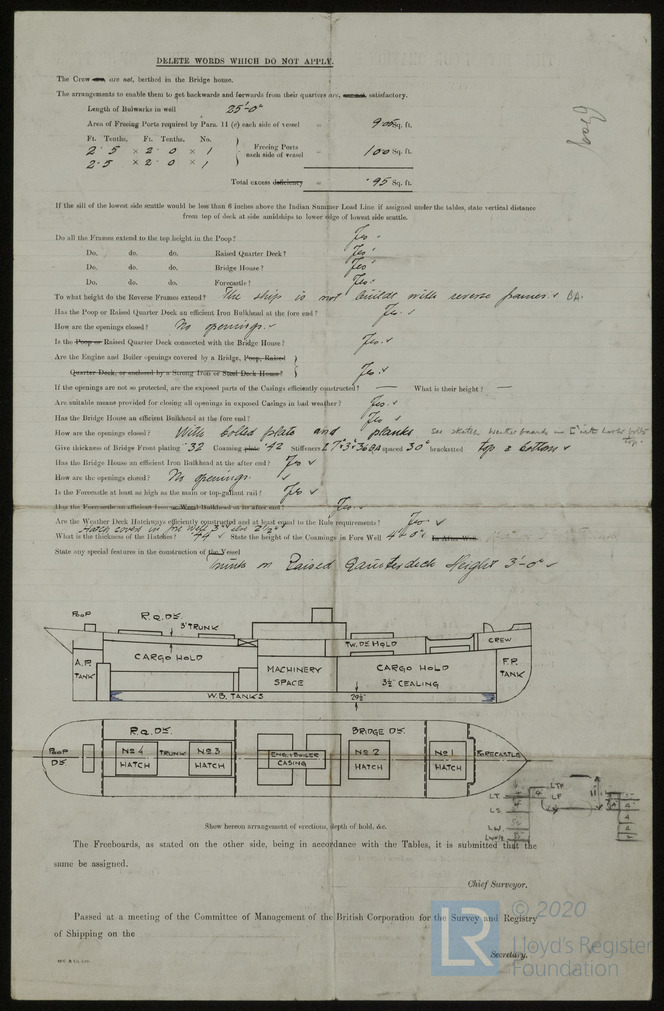 DELETE WORDS WHICH DO NOT APPLY.
The Crew are, are not, berthed in the Bridge house.
The arrangements to enable them to get backwards and forwards from their quarters are, are not, satisfactory.
Length of Bulwarks in well 35'-0"
Area of Freeing Ports required by Para. 11 (e) each side of vessel = 9.05 Sq. ft.
Ft. Tenths. Ft. Tenths. No.
2.5 × 2.0 × 1
2.5 × 2.0 × 1
Freeing Ports each side of vessel = 10.0 Sq. ft.
Total excess deficiency = .95 Sq. ft.
If the sill of the lowest side scuttle would be less than 6 inches above the Indian Summer Load Line if assigned under the tables, state vertical distance
from top of deck at side amidships to lower edge of lowest side scuttle.
Do all the Frames extend to the top height in the Poop? Yes
Do. do. do. Raised Quarter Deck? Yes
Do. do. do. Bridge House? Yes
Do. do. do. Forecastle? Yes
To what height do the Reverse Frames extend? The ship is not built with reverse frames.
Has the Poop or Raised Quarter Deck an efficient Iron Bulkhead at the fore end? Yes.
How are the openings closed? No openings.
Is the Poop or Raised Quarter Deck connected with the Bridge House? Yes.
Are the Engine and Boiler openings covered by a Bridge, Poop, Raised
Quarter Deck, or enclosed by a Strong Iron or Steel Deck House? Yes.
If the openings are not so protected, are the exposed parts of the Casings efficiently constructed? — What is their height? —
Are suitable means provided for closing all openings in exposed Casings in bad weather? Yes.
Has the Bridge House an efficient Bulkhead at the fore end? Yes
How are the openings closed? With bolted plate and planks see sketch
Give thickness of Bridge Front plating .32 Coaming plate .42 Stiffeners spaced 30" bracketted top & bottom
Has the Bridge House an efficient Iron Bulkhead at the after end? Yes
How are the openings closed? No openings.
Is the Forecastle at least as high as the main or top-gallant rail? Yes
Has the Forecastle an efficient Iron or Wood Bulkhead at its after end? Yes.
Are the Weather Deck Hatchways efficiently constructed and at least equal to the Rule requirements? Yes.
Hatch covers in fore well 3" 2½"
What is the thickness of the Hatches? State the height of the Coamings in Fore Well 4'-0" In After Well
State any special features in the construction of the Vessel
Trunk on Raised Quarterdeck Height 3'-0"
POOP
R.Q.DK.
3' TRUNK
TW. DK HOLD
CREW
A.P. TANK
CARGO HOLD
MACHINERY SPACE
CARGO HOLD
3½" CEALING
F.P. TANK
W.B. TANKS
POOP DK.
R.Q. DK.
BRIDGE DK.
No 4 HATCH
TRUNK
No 3 HATCH
ENG. & BOILER CASING
No 2 HATCH
No 1 HATCH
FORECASTLE
LT
LS
LW
LTF
LF
Show hereon arrangement of erections, depth of hold, &c.
The Freeboards, as stated on the other side, being in accordance with the Tables, it is submitted that the
same be assigned.
Chief Surveyor.
Passed at a meeting of the Committee of Management of the British Corporation for the Survey and Registry
of Shipping on the
Secretary.
LR
© 2020
Lloyd's Register
Foundation